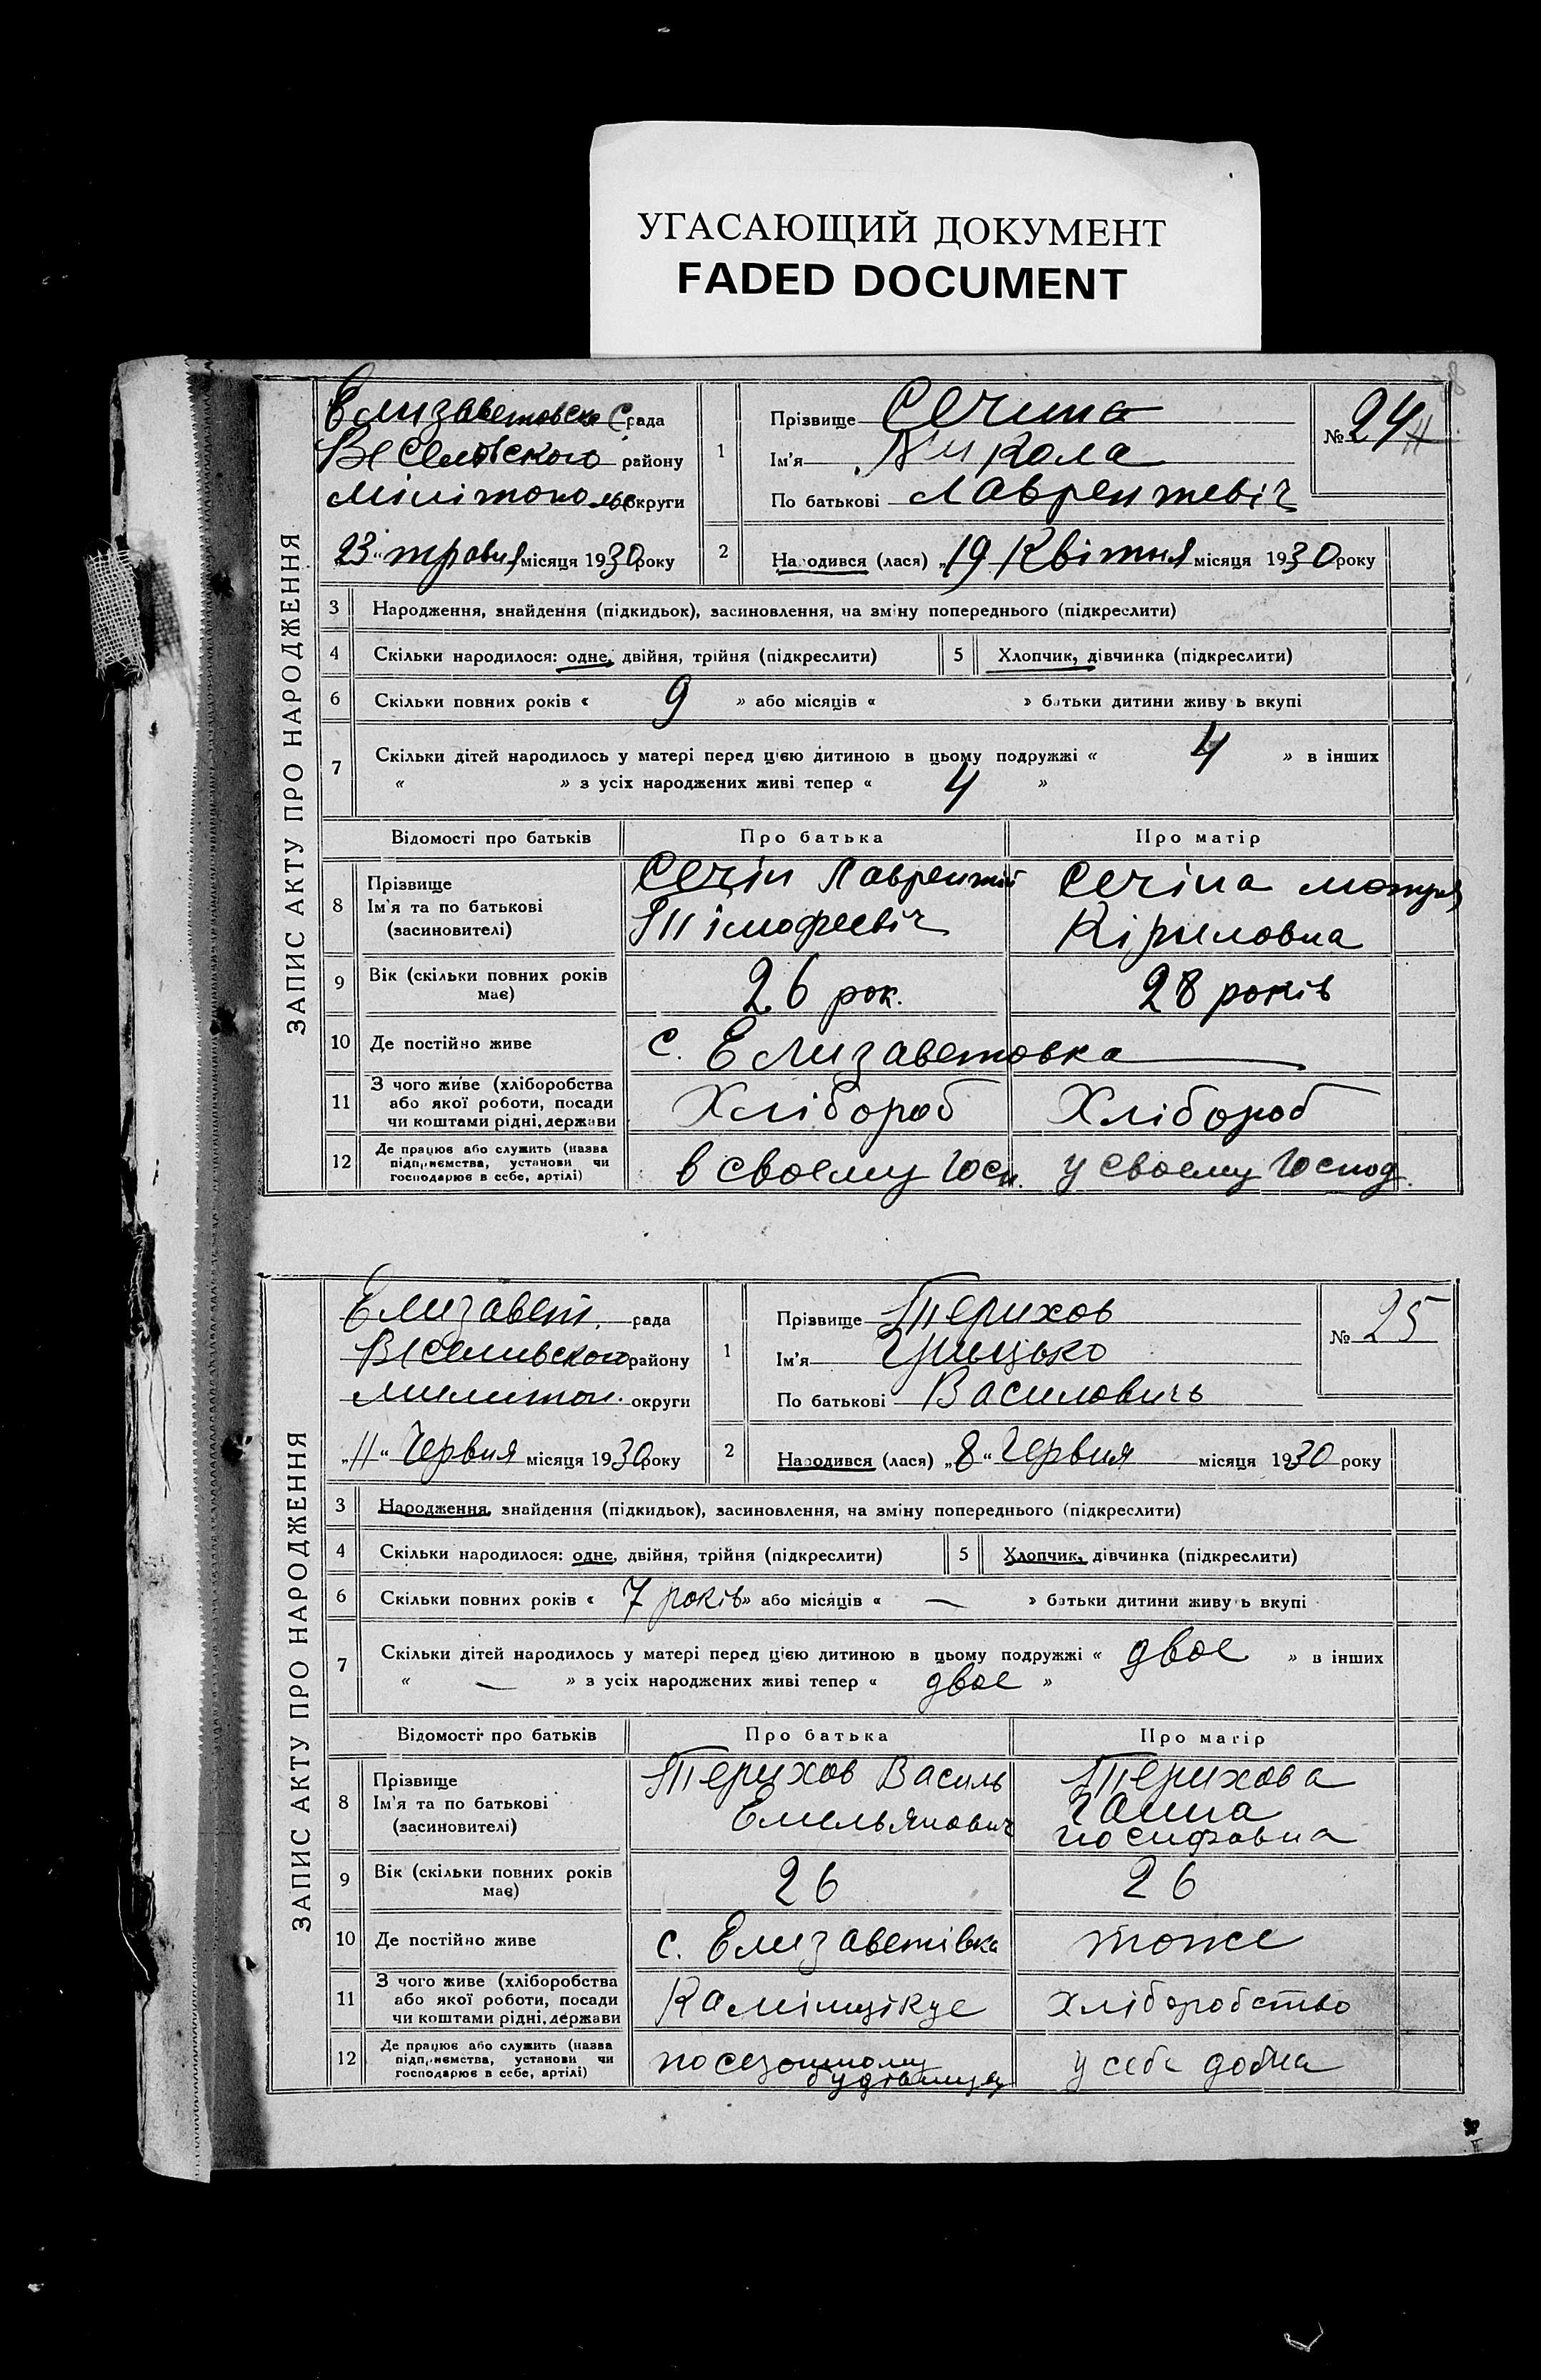 УГАСАЮЩИЙ ДОКУМЕНТ
FADED DOCUMENT
ЗАПИС АКТУ ПРО НАРОДЖЕННЯ
Елизаветовска С рада
Веселовского району
Мілітополь округи
23 " травня місяця 1930 року
1
Прізвище Сечина
Ім'я Микола
По батькові Лаврентевіч
№ 24
2
Народився (лася) „19 Квітня місяця 1930 року
3 Народження, знайдення (підкидьок), засиновлення, на зміну попереднього (підкреслити)
4 Скільки народилося: одне, двійня, трійня (підкреслити) 5 Хлопчик, дівчинка (підкреслити)
6 Скільки повних років « 9 » або місяців « » батьки дитини живуть вкупі
7 Скільки дітей народилось у матері перед цією дитиною в цьому подружжі « 4 » в інших
« » з усіх народжених живі тепер « 4 »
Відомості про батьків Про батька Про матір
8 Прізвище
Ім'я та по батькові
(засиновителі)
Сечін Лаврентій
Тімофеевіч
Сечіна
Кіриловна
9 Вік (скільки повних років
має)
26 рок. 28 років
10 Де постійно живе с. Елизаветовка
11 З чого живе (хліборобства
або якої роботи, посади
чи коштами рідні, держави
Хлібороб Хлібороб
12 Де працює або служить (назва
підприємства, установи чи
господарює в себе, артілі)
в своєму Госп. у своєму Господ.
ЗАПИС АКТУ ПРО НАРОДЖЕННЯ
Елизавет. рада
Веселивского району
Милитоп. округи
„11" Червня місяця 1930 року
1
Прізвище Терихов
Ім'я Грицько
По батькові Василовичь
№ 25
2
Народився (лася) „8" Червня місяця 1930 року
3 Народження, знайдення (підкидьок), засиновлення, на зміну попереднього (підкреслити)
4 Скільки народилося: одне, двійня, трійня (підкреслити) 5 Хлопчик, дівчинка (підкреслити)
6 Скільки повних років « 7 років » або місяців « — » батьки дитини живуть вкупі
7 Скільки дітей народилось у матері перед цією дитиною в цьому подружжі « двое » в інших
« — » з усіх народжених живі тепер « двое »
Відомості про батьків Про батька Про матір
8 Прізвище
Ім'я та по батькові
(засиновителі)
Терихов Василь
Емельянович
Терихова
Ганна
Иосифовна
9 Вік (скільки повних років
має)
26 26
10 Де постійно живе с. Елизаветівка тоже
11 З чого живе (хліборобства
або якої роботи, посади
чи коштами рідні, держави
хліборобство
12 Де працює або служить (назва
підприємства, установи чи
господарює в себе, артілі)
по
у себе дома